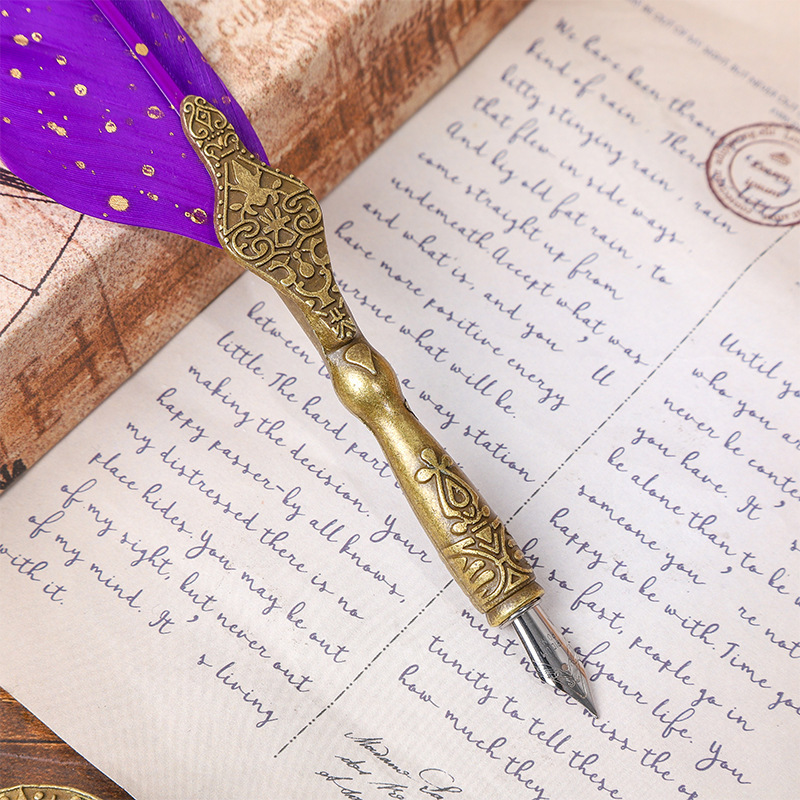 BE OUT OF MY SIGHT, BUT NEVER OUT
We have been throu
kind of rain. There
bitty stinging rain, rain
that flew in side ways.
And big old fat rain, to
come straight up from
underneath Accept what was
and what is, and you ' ll
have more positive energy
ursue what will be.
between
little. The hard part a way station
making the decision. Your
happy passer-by all knows,
my distressed there is no
place hides. You may be out
of my sight, but never out
of my mind. It ' s living
with it.
Until you
who you are
never be conte
you have. It ' s
be alone than to be
someone you ' re not
happy to be with. Time go
so fast, people go in
of your life. You
must never miss the
tunity to tell these
how much they
Madame